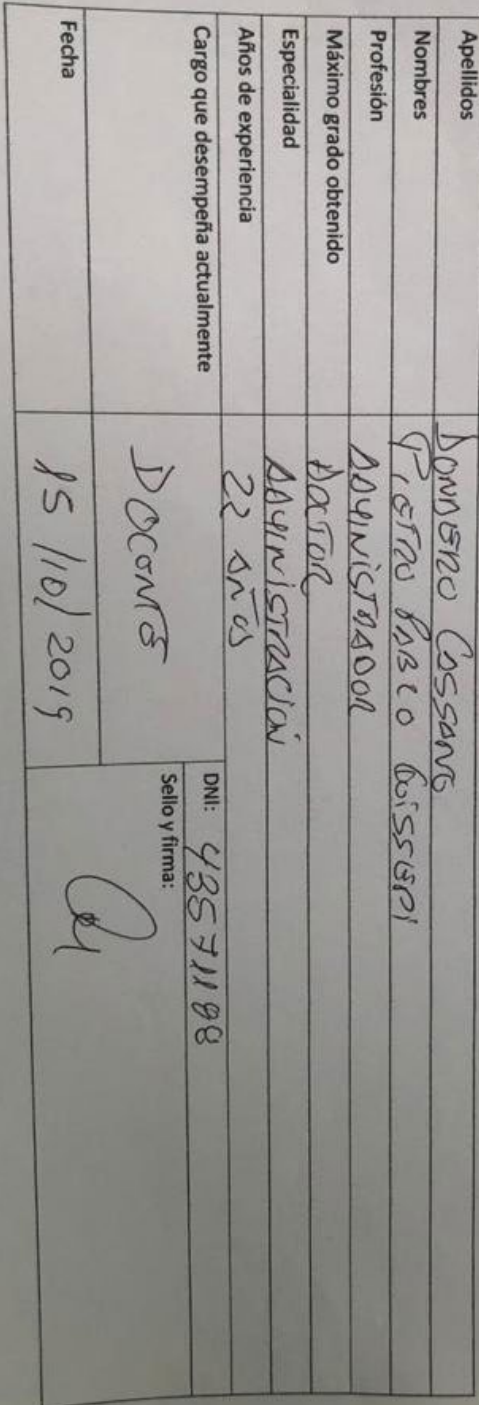 Apellidos Donnero Cassano
Nombres Pietro Pablo Guisseppi
Profesión Administrador
Máximo grado obtenido Doctor
Especialidad Administración
Años de experiencia 22 años
Cargo que desempeña actualmente Docente
DNI:
Sello y firma:
Fecha 15/10/2019